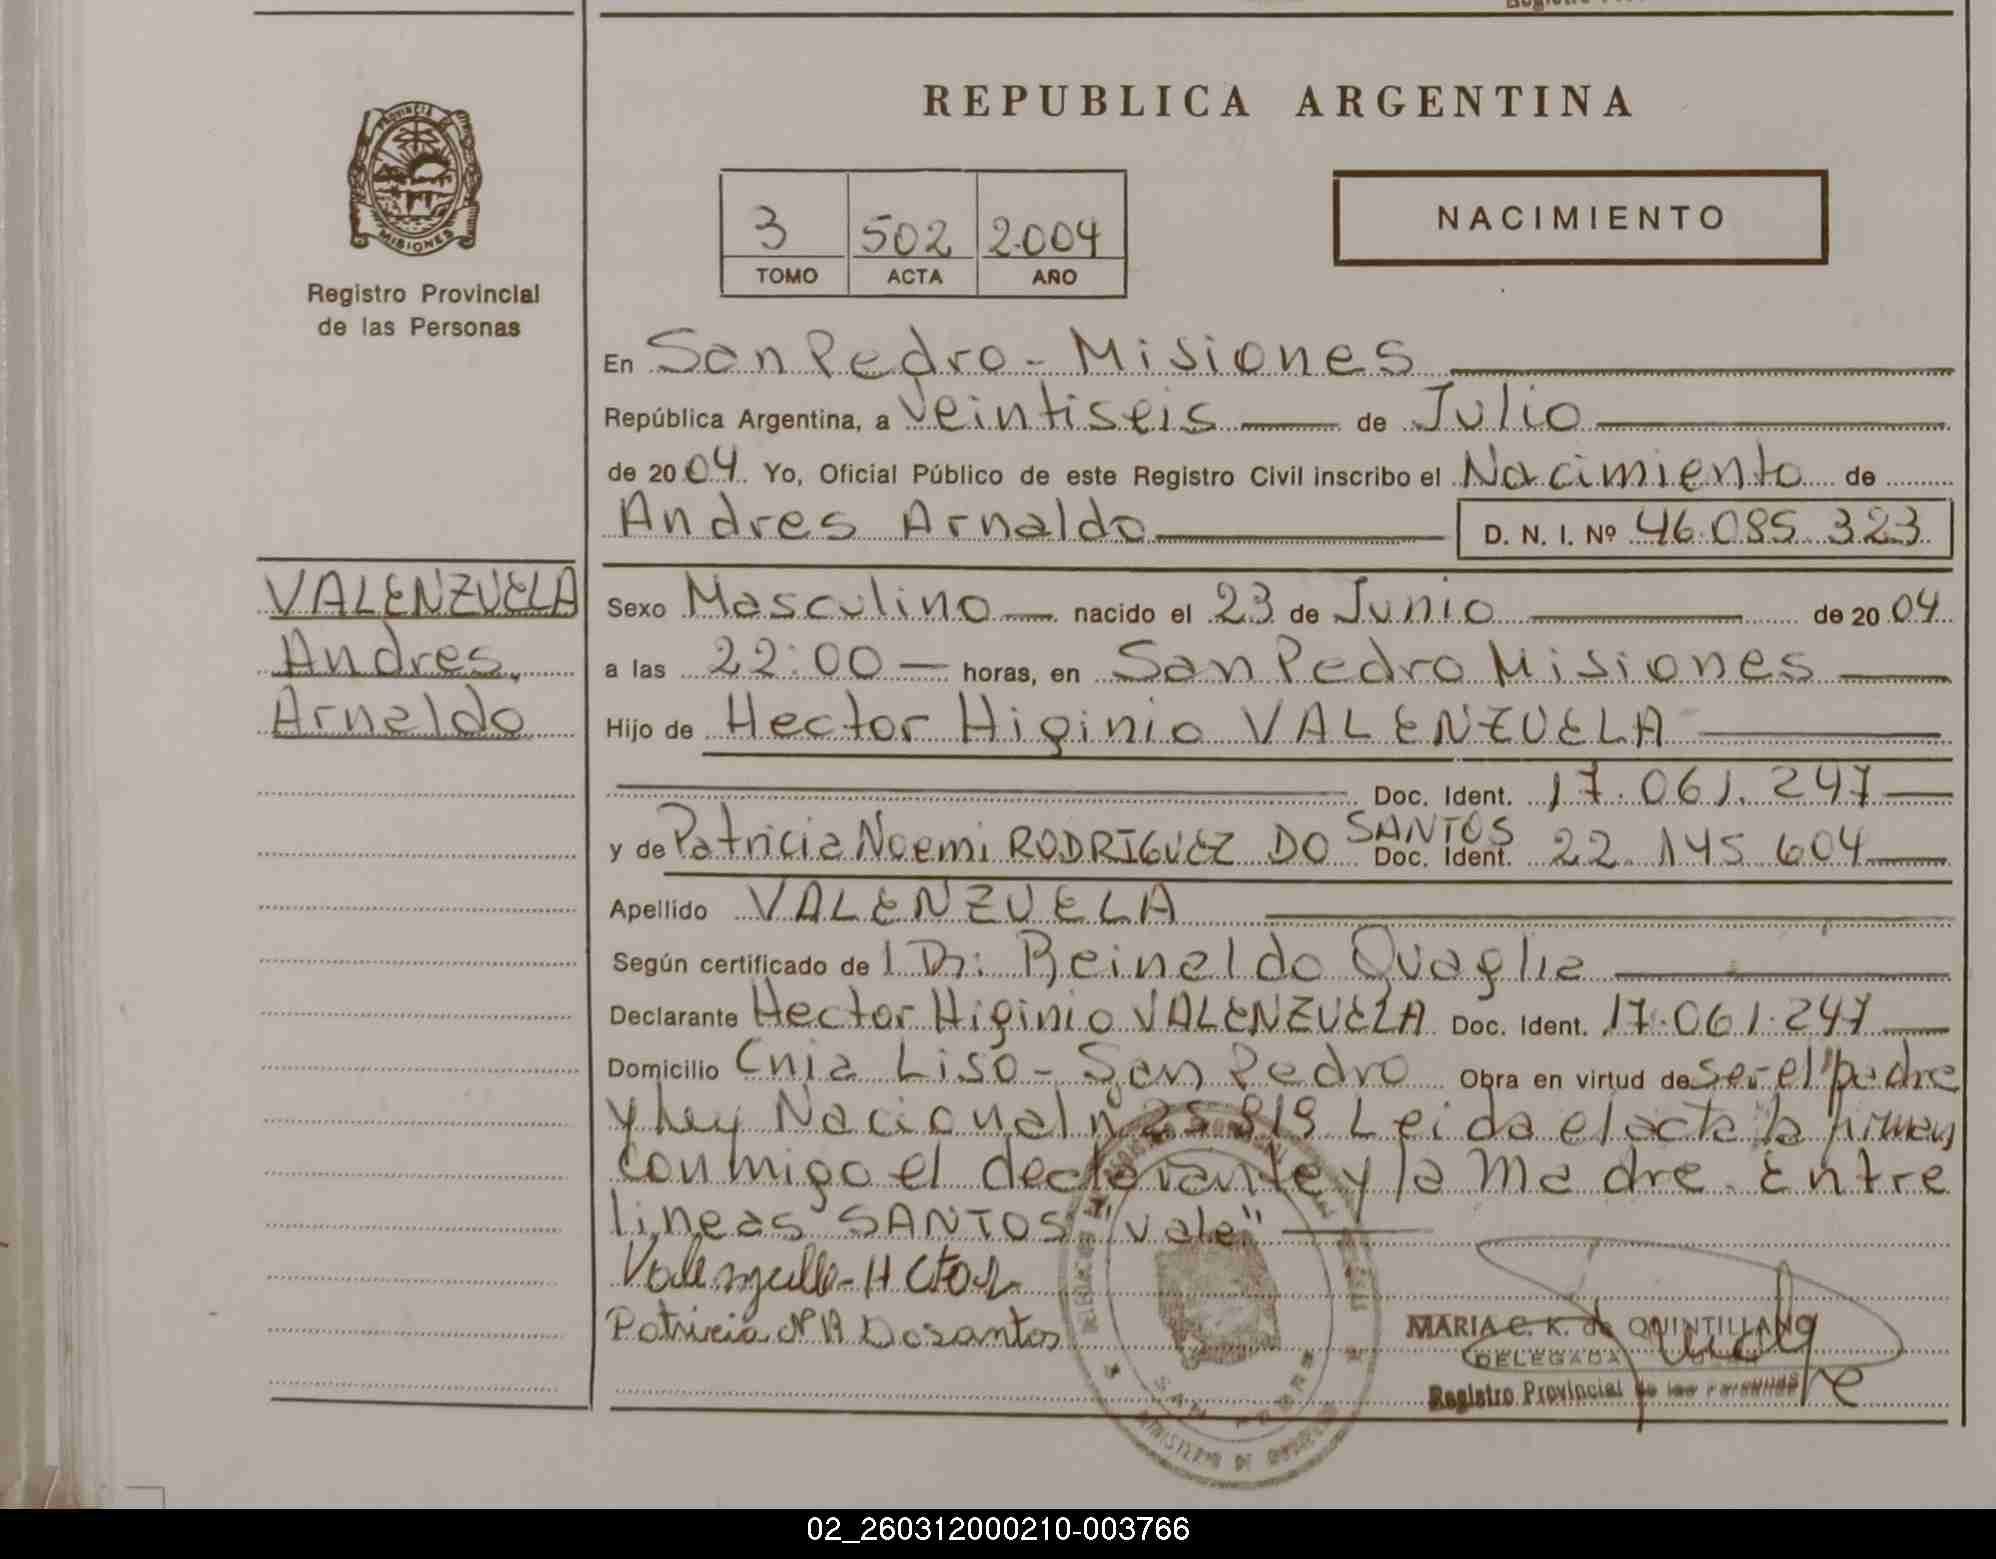 REPUBLICA ARGENTINA
PROVINCIA
MISIONES
Registro Provincial
de las Personas
3 502 2004
TOMO ACTA AÑO
NACIMIENTO
En San Pedro - Misiones
República Argentina, a Veintiseis de Julio
de 2004. Yo, Oficial Público de este Registro Civil inscribo el Nacimiento de
Andres Arnaldo D. N. I. Nº 46.085.323
VALENZUELA
Andres,
Arnaldo
Sexo Masculino nacido el 23 de Junio de 2004
a las 22:00 horas, en San Pedro Misiones
Hijo de Hector Higinio VALENZUELA
Doc. Ident. 17.061.247
y de Patricia Noemi RODRIGUEZ DO SANTOS Doc. Ident. 22.145.604
Apellido VALENZUELA
Según certificado de l Dr: Reinaldo Quaglia
Declarante Hector Higinio VALENZUELA Doc. Ident. 17.061.247
Domicilio Cnia Liso - San Pedro Obra en virtud de ser el padre
y Ley Nacional nº 25.819 Leida el acta la firman
conmigo el declarante y la Madre. Entre
lineas "SANTOS" "vale"
Hctor
Patricia Dosantos
MARIA C. K. de QUINTILLANO
DELEGADA
Registro Provincial de las Personas
SAN PEDRO
MINISTERIO DE GOBIERNO
02_260312000210-003766